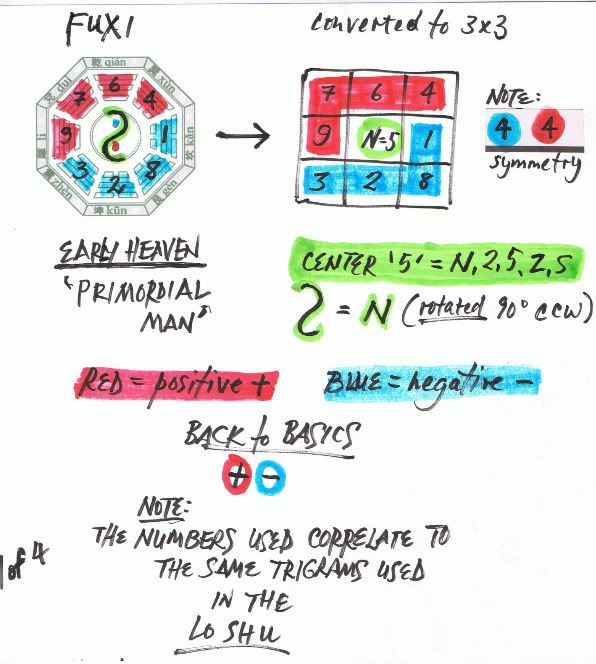 FUXI
converted to 3x3
乾 qián
兌 duì
巽 xùn
7 6 4
9 1
離 lí
坎 kǎn
3 2 8
震 zhèn
艮 gèn
坤 kūn
7 6 4
9 N=5 1
3 2 8
NOTE:
4 4
symmetry
EARLY HEAVEN
"PRIMORDIAL
MAN"
CENTER '5' = N, 2, 5, Z, S
S = N (rotated 90° ccw)
RED = positive +
BLUE = negative −
BACK to BASICS
+ −
NOTE:
THE NUMBERS USED CORRELATE TO
THE SAME TRIGRAMS USED
IN THE
LO SHU
1 of 4